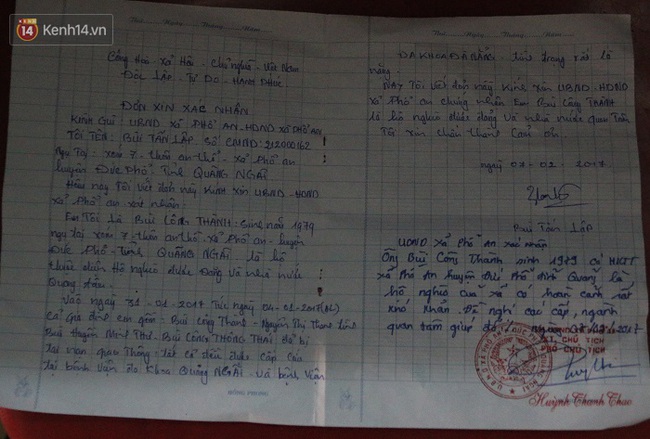 Kenh14.vn
Cộng Hoà Xã Hội Chủ Nghĩa Việt Nam
Độc Lập Tự Do Hạnh Phúc
ĐƠN XIN XÁC NHẬN
Kính Gửi: UBND XÃ PHỔ AN HĐND XÃ PHỔ AN
TÔI TÊN: BÙI TẤN LẬP SỐ CMND: 212000162
Ngụ Tại xóm 7 thôn an thổ xã Phổ an
huyện ĐỨC PHỔ Tỉnh QUẢNG NGÃI
Hôm nay Tôi viết đơn này kính xin UBND HĐND
xã Phổ an xác nhận
Em Tôi là BÙI CÔNG THÀNH sinh năm 1979
ngụ tại xóm 7 thôn an thổ xã Phổ an huyện
Đức Phổ Tỉnh QUẢNG NGÃI là hộ
nghèo được Đảng và nhà nước
Quang tâm
Vào ngày 31-01-2017 Tức ngày 04-01-2017(ÂL)
cả gia đình em gồm: Bùi Công Thành Nguyễn Thị Thanh
Bùi huyền Minh Thư BÙI CÔNG THÔNG THÁI bị
tai nạn giao Thông tất cả đều cấp cứu
tại bệnh viện đa khoa QUẢNG NGÃI và bệnh viện
ĐA KHOA ĐÀ NẴNG tình trạng rất là
nặng
NAY Tôi viết đơn này kính xin UBND HĐND
xã Phổ an chứng nhận Em Bùi Công THÀNH
là hộ nghèo được Đảng và nhà nước quan Tâm
Tôi xin chân thành cảm ơn
ngày 07-02-2017
Bùi Tấn Lập
UBND xã Phổ An xác nhận
Ông Bùi Công Thành sinh 1979 có HKTT
xã Phổ An huyện Đức Phổ tỉnh Quảng là
hộ nghèo của xã có hoàn cảnh rất
khó khăn. Đề nghị các cấp, ngành
quan tâm giúp đỡ
KT. CHỦ TỊCH
PHÓ CHỦ TỊCH
Huỳnh Thanh Thao